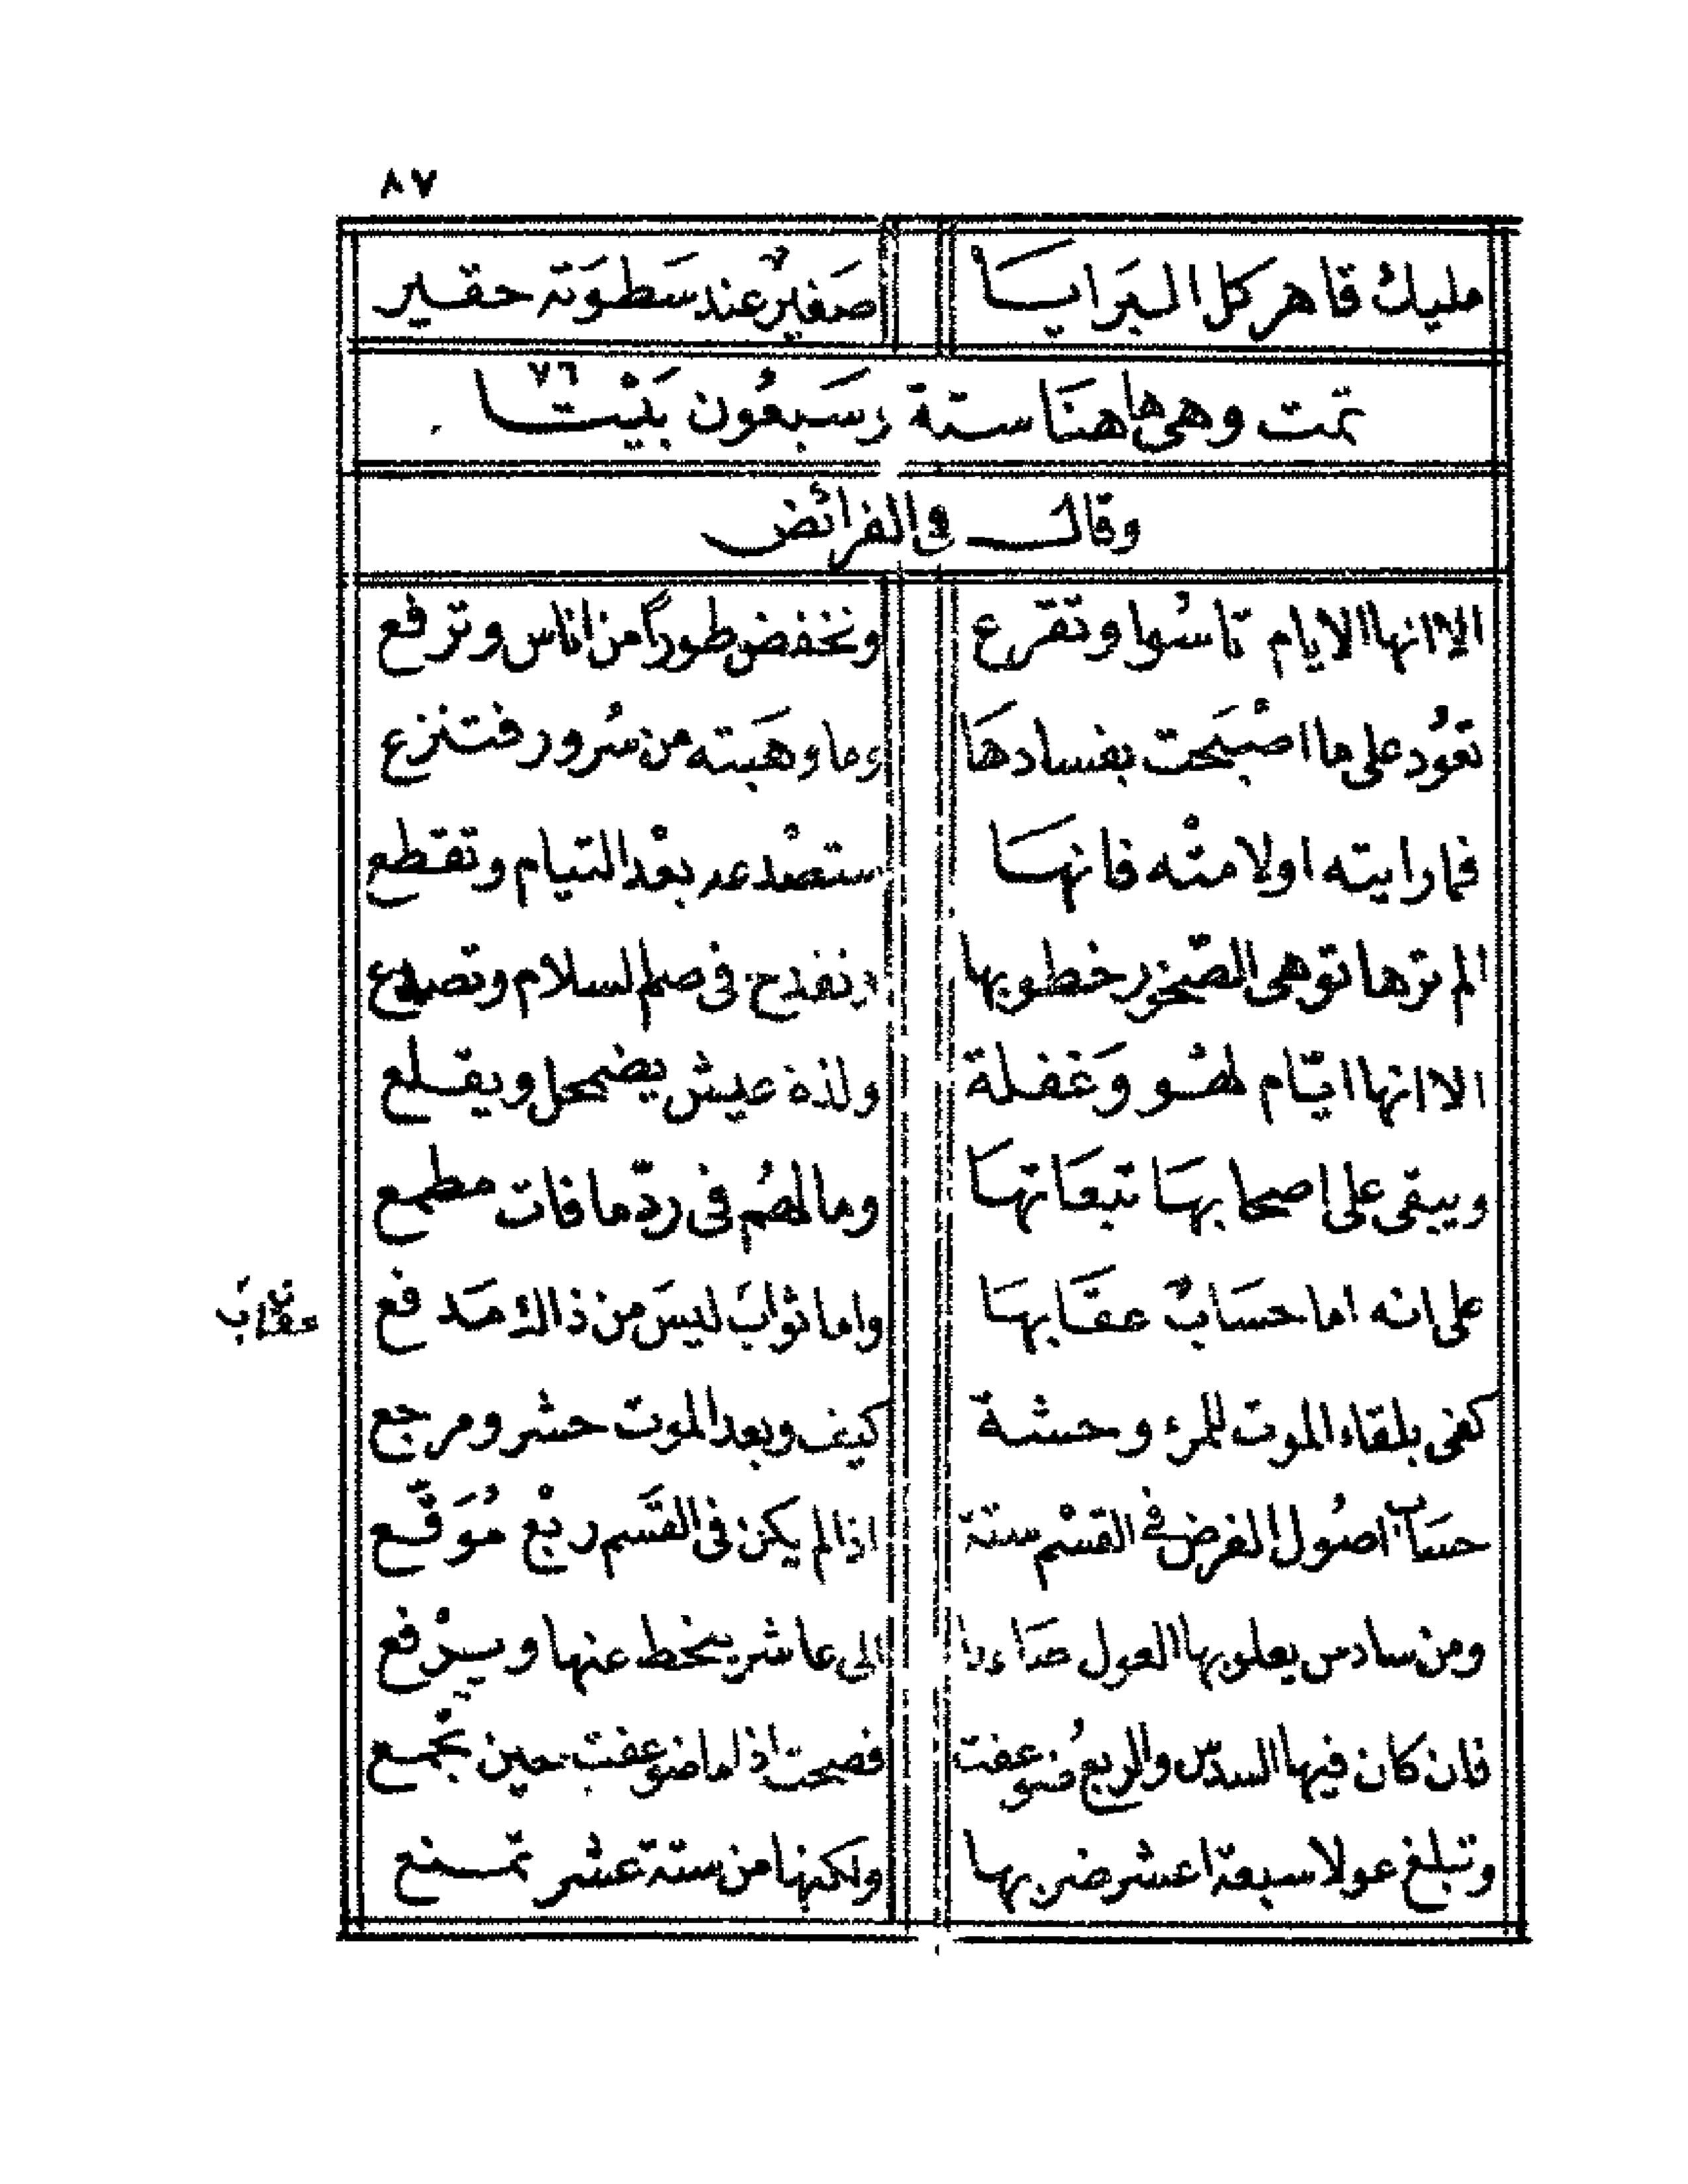 ٨٧
مليك قاهر كل البَرايَا صَغيرٌ عند سَطوَته حقير
تمت وهى هاهنَا ستة وسَبعُون بَيْتا ٧٦
وقال فى الفرائض
الا انها الايام تاسُوا وتقرع وتخفض طوراً من اناس وترفع
تعُود على ما اصْبَحت بفسادهَا وما وهَبته من سُرور فتنزع
فما رايته اولا متْه فانهَا ستصْدعه بعْد التيام وتقطع
الم ترها توهى الصّخور خطوبها وتفدح فى صلم السلام وتصدع
الا انها ايّام لهُو وَغفلة ولذة عيش يضمحل ويقلع
ويبقى على اصحابهَا تبعَاتهَا وما لهُم فى ردّ ما فات مطمع
على انه اما حسَابٌ عقَابهَا واما ثوابَ ليسَ من ذاك مَدفع
عقابَ
كفى بلقاء الموت للمرء وحشة كيف وبعد الموت حشر ومرجع
حسَاب اصُول الفرض فى القسْم ستة اذا لم يكن فى القَسم ربْع مُوَقّع
ومن سادس يعلو بها العول الى عاشر ينحط عنها ويرْفع
فان كان فيها السدس والربعُ ضوعفت فصحت اذا ما ضوعفت حين تجْمع
وتبلغ عولا سبعة اعشر ضربها ولكنها من ستة عشر تمنع